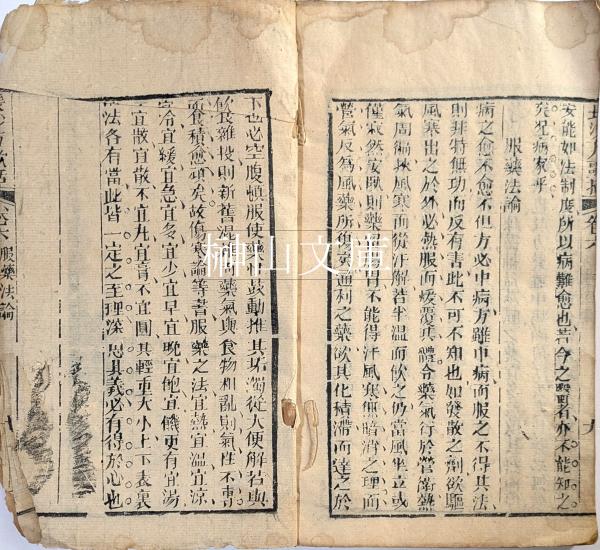 安能如法制度所以病難愈也若今之醫者亦不能知之
矣況病家乎
服藥法論
病之愈不愈不但方必中病方雖中病而服之不得其法
則非特無功而反有害此不可不知也如發散之劑欲驅
風寒出之於外必熱服而煖覆其體令藥氣行於營衛熱
氣周徧挾風寒而從汗解若半溫而飲之仍當風坐立或
僅寂然安臥則藥留腸胃不能得汗風寒無暗消之理而
營氣反為風藥所傷矣通利之藥欲其化積滯而達之於
下也必空腹頓服使藥性鼓動推其垢濁從大便解若與
飲食雜投則新舊混雜而藥氣與食物相亂則氣性不專
而食積愈頑矣故傷寒論等書服藥之法宜熱宜溫宜涼
宜冷宜緩宜急宜多宜少宜早宜晚宜飽宜饑更有宜湯
不宜散宜散不宜丸宜膏不宜圓其輕重大小上下表裏
治法各有當此皆一定之至理深思其義必有得於心也
卷六 服藥法論
榊山文庫